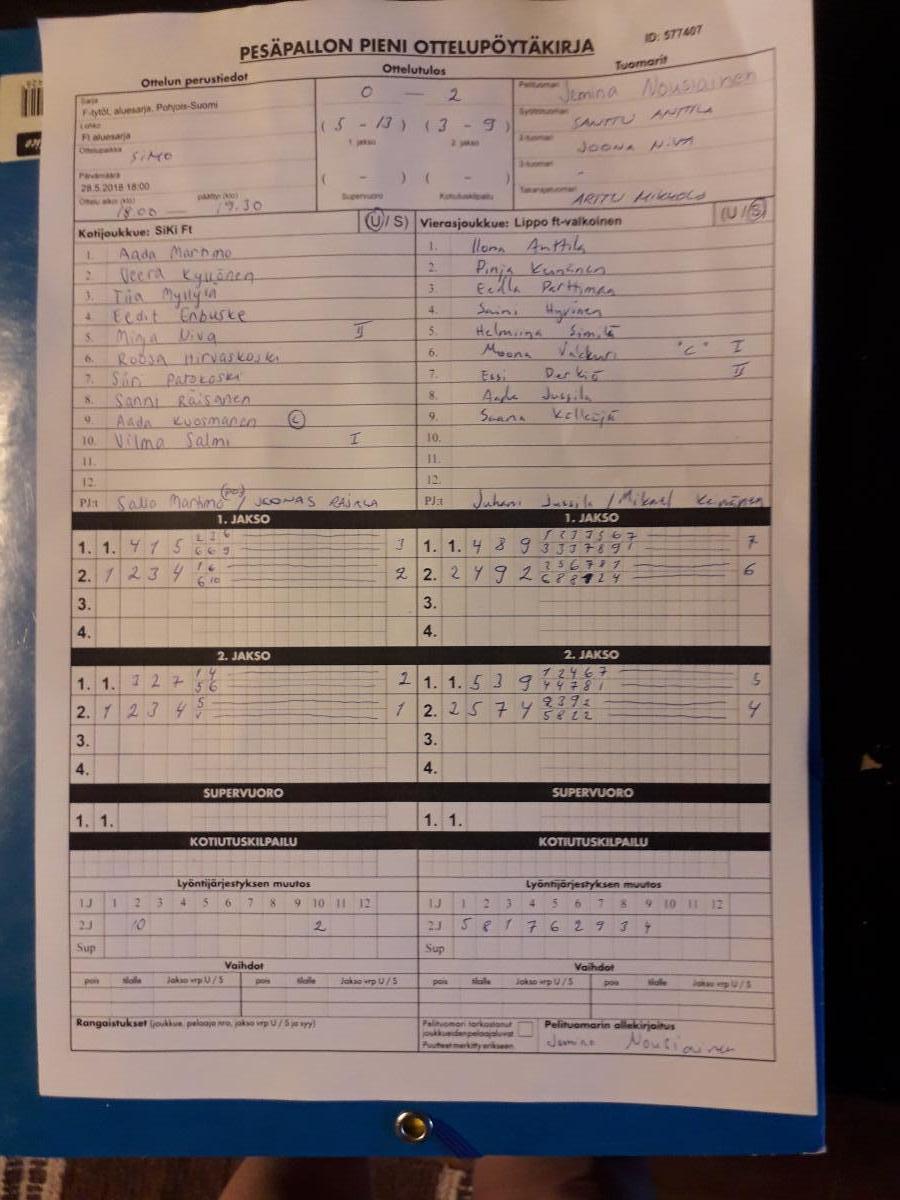 ID: 577407
PESÄPALLON PIENI OTTELUPÖYTÄKIRJA
Ottelun perustiedot
Sarja
F-tytöt, aluesarja, Pohjois-Suomi
Lohko
Ft aluesarja
Ottelupaikka
SIMO
Päivämäärä
28.5.2018 18:00
Ottelu alkoi (klo) päättyi (klo)
18.00 — 19.30
Ottelutulos
0 — 2
(5 - 13) (3 - 9)
1. jakso 2. jakso
( - ) ( - )
Supervuoro Kotiutuskilpailu
Tuomarit
Pelituomari Jemina Nousiainen
Syöttötuomari SANTTU ANTTILA
2-tuomari JOONA NIVA
3-tuomari -
Takarajatuomari
Kotijoukkue: SiKi Ft (U / S)
1. Aada Martimo
2. Veera Kyllönen
3. Tiia Myllylä
4. Eedit Enbuske
5. Minja Niva II
6. Roosa Hirvaskoski
7. Siiri Patokoski
8. Sanni Räisänen
9. Aada Kuosmanen C
10. Vilma Salmi I
11.
12.
PJ:t Martimo / JOONAS RAJALA
Vierasjoukkue: Lippo ft-valkoinen (U / S)
1. Ilona Anttila
2. Pinja
3. Eella Parttimaa
4. Saimi Hyvönen
5. Helmiina Similä
6. Moona Valkuri "C" I
7. Essi II
8. Aada Jussila
9. Saana
10.
11.
12.
PJ:t Juhani Jussila / Mikael
1. JAKSO
1. 1. 4 1 5 2 3 6 3
6 6 9
2. 1 2 3 4 1 6 2
6 10
3.
4.
1. JAKSO
1. 1. 4 8 9 7
2. 2 4 9 2 6
3.
4.
2. JAKSO
1. 1. 3 2 7 1 4 2
5 6
2. 1 2 3 4 5 1
3.
4.
2. JAKSO
1. 1. 5 3 9 1 2 4 6 7 5
4 4 7 8 1
2. 2 5 7 4 4
5 8 2 2
3.
4.
SUPERVUORO
1. 1.
SUPERVUORO
1. 1.
KOTIUTUSKILPAILU
KOTIUTUSKILPAILU
Lyöntijärjestyksen muutos
1.J 1 2 3 4 5 6 7 8 9 10 11 12
2.J 10 2
Sup
Lyöntijärjestyksen muutos
1.J 1 2 3 4 5 6 7 8 9 10 11 12
2.J 5 8 1 7 6 2 9 3 4
Sup
Vaihdot
pois tilalle Jakso vrp U / S pois tilalle Jakso vrp U / S
Vaihdot
pois tilalle Jakso vrp U / S pois tilalle Jakso vrp U / S
Rangaistukset (joukkue, pelaaja nro, jakso vrp U / S ja syy)
Pelituomari tarkastanut
joukkueiden pelaajaluvat
Puutteet merkitty erikseen
Pelituomarin allekirjoitus
Jemina Nousiainen